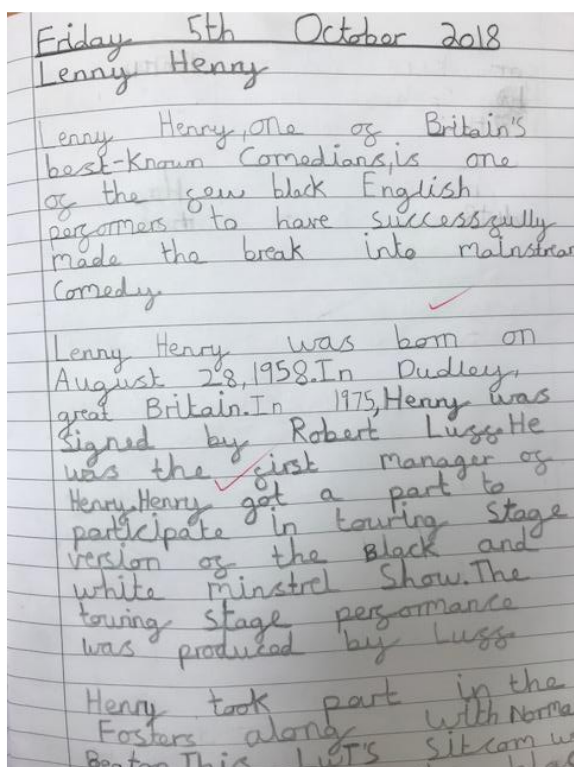 Friday 5th October 2018
Lenny Henry
Lenny Henry, one of Britain's
best-Known Comedians, is one
of the few black English
performers to have successfully
made the break into mainstream
Comedy.
Lenny Henry was born on
August 28, 1958. In Dudley,
great Britain. In 1975, Henry was
Signed by Robert Luff. He
was the first manager of
Henry. Henry got a part to
participate in touring Stage
version of the Black and
white minstrel Show. The
touring stage performance
was produced by Luff
Henry took part in the
Fosters along with Norma
This LWT'S Sitcom